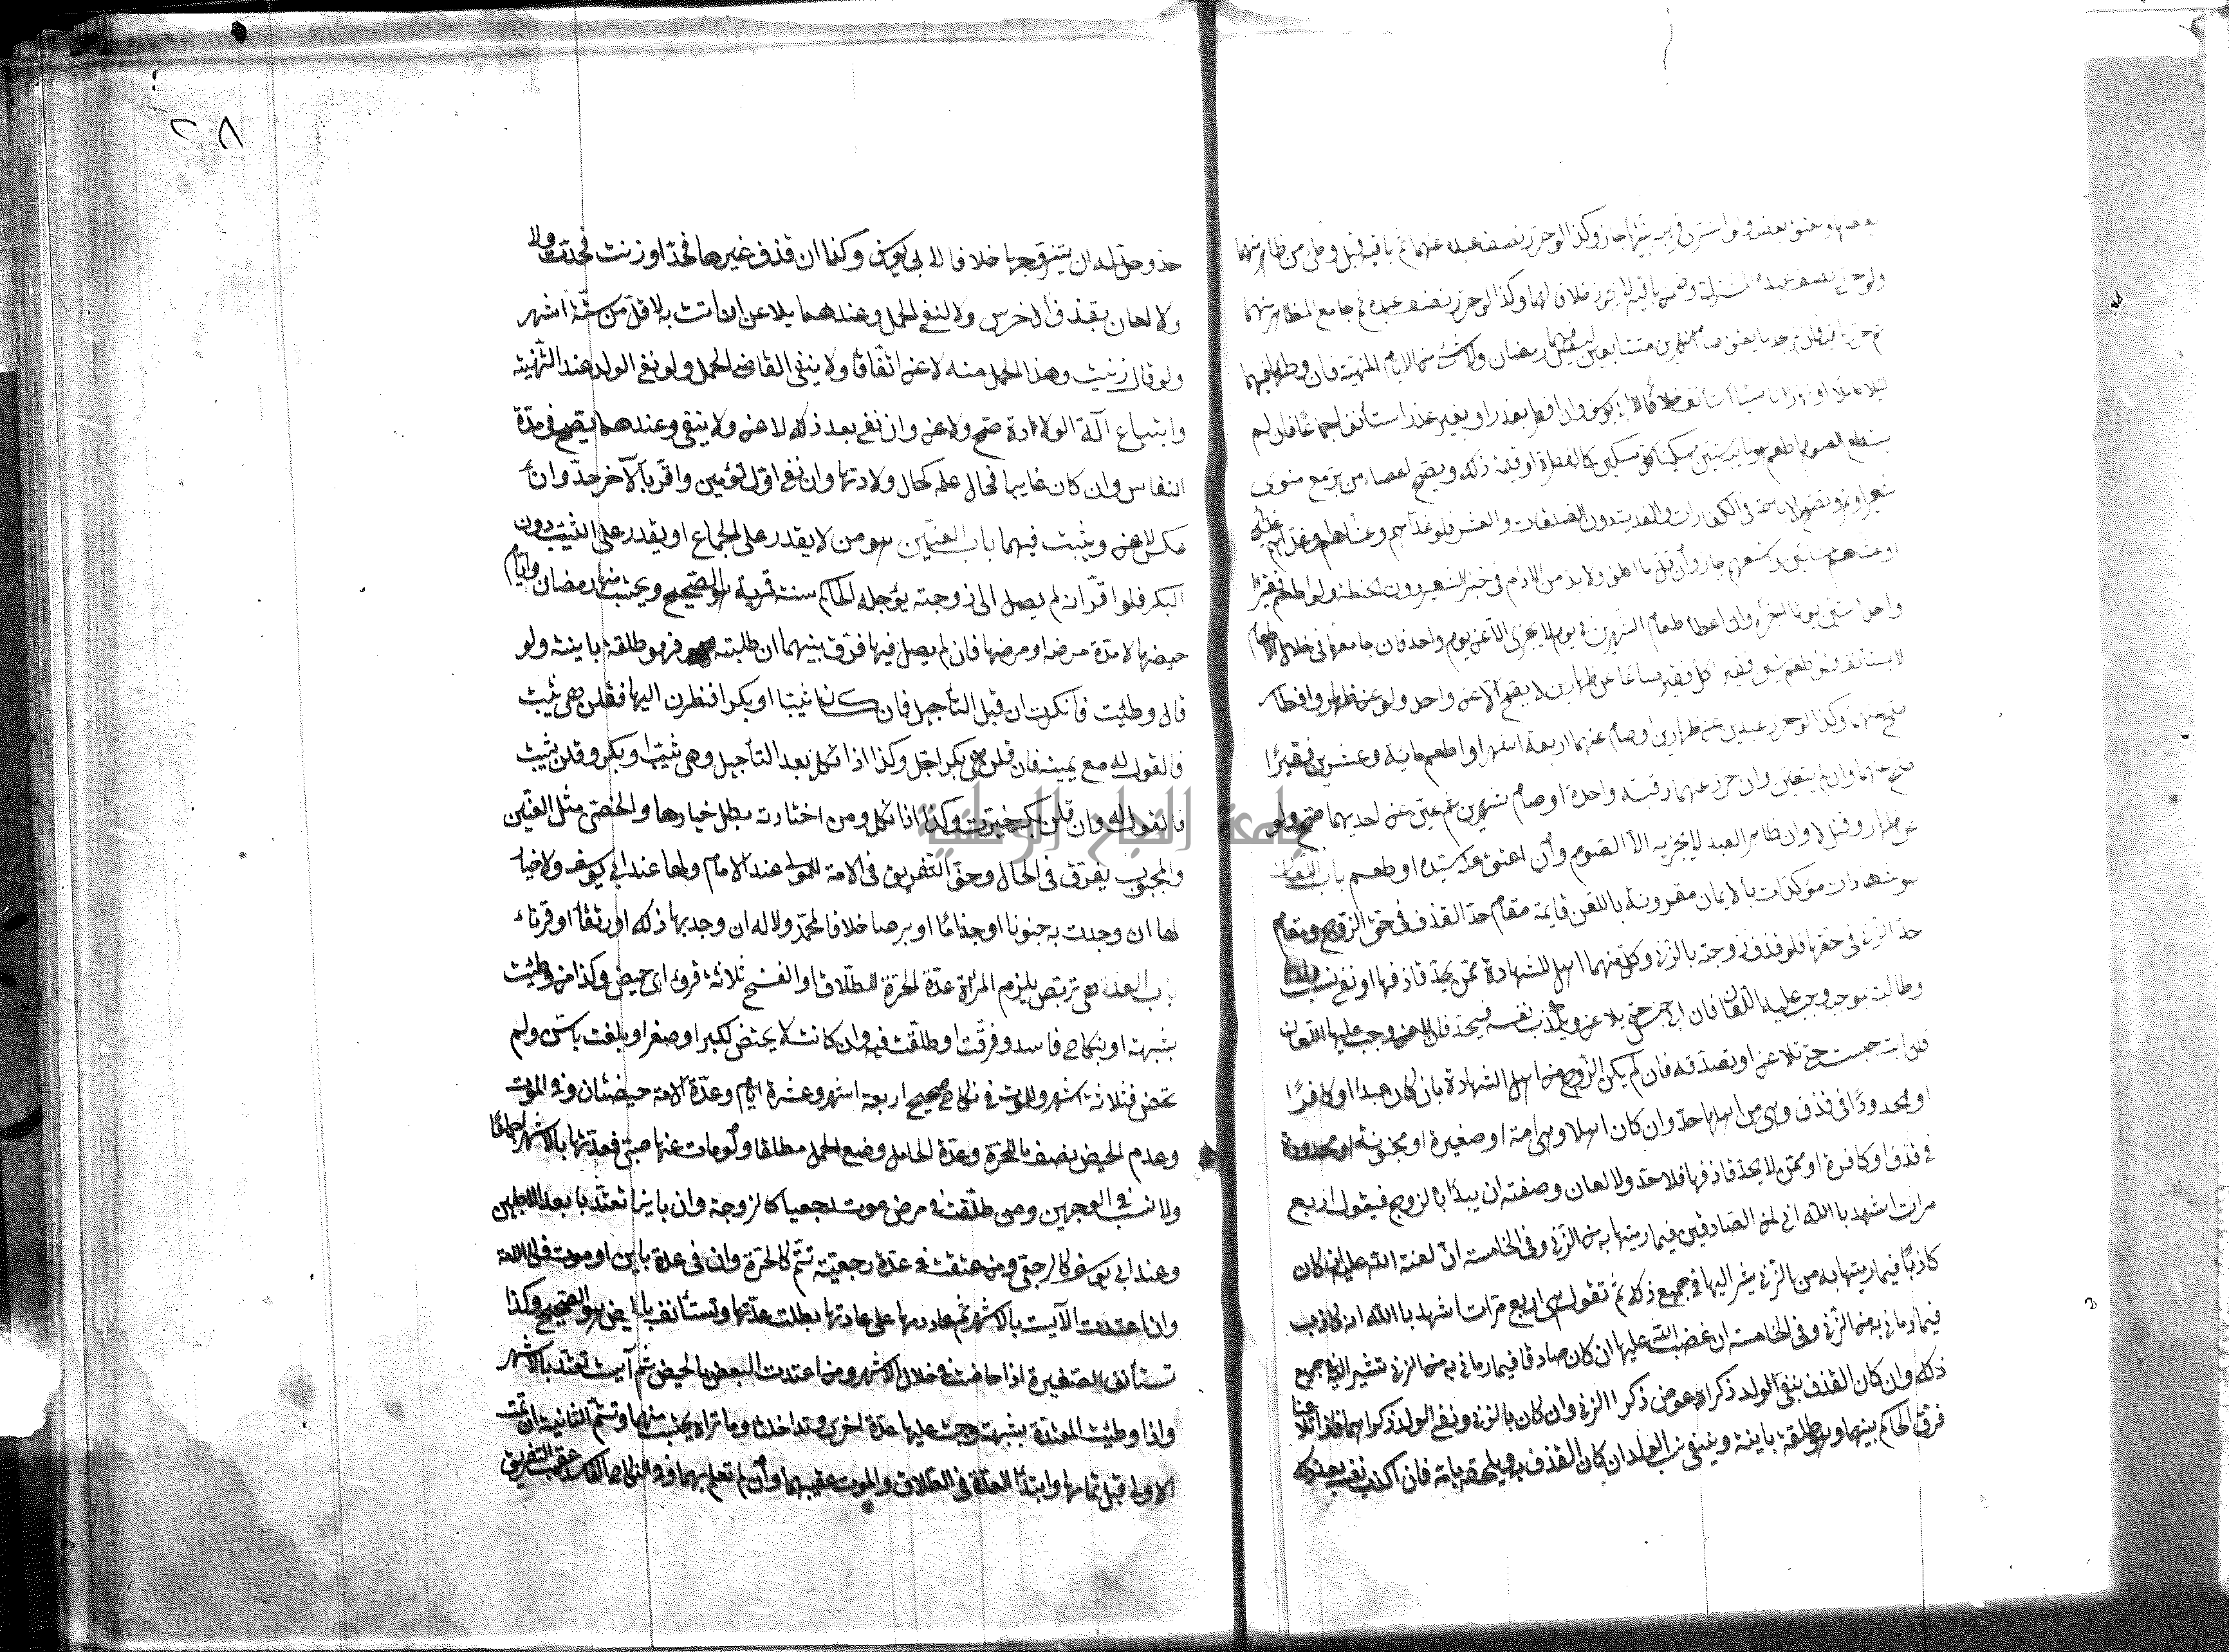 ولو حرر نصف عبده ثم جامع المظاهر منها
فان لم يجد ما يعتق صام شهرين متتابعين ليس فيهما رمضان ولا شيء من الايام المنهية فان وطئها فيهما
ليلا عامدا او نهارا ناسيا استأنف خلافا لابي يوسف وان افطر بعذر او بغير عذر استأنف اجماعا فان لم
يستطع الصوم اطعم هو او نائبه ستين مسكينا كل مسكين كالفطرة او قيمة ذلك
في الكفارات والفدية دون الصدقات والعشر فلو غداهم وعشاهم او غداهم غدائين
او عشاهم عشائين واشبعهم جاز وان قل ما اكلوا ولا بد من الادام في خبز الشعير دون الحنطة ولو اطعم فقيرا
واحدا ستين يوما اجزأه وان اعطاه طعام الشهرين في يوم لا يجزئ الا عن يوم واحد فان جامعها في خلال الاطعام
لا يستأنف ولو اطعم ستين فقيرا كل فقير صاعا عن ظهارين لا يصح الا عن واحد ولو عن ظهار وافطار
صح عنهما وكذا لو حرر عبدين عن ظهارين او صام عنهما اربعة اشهر او اطعم مائة وعشرين فقيرا
صح عنهما وان لم يعين وان حرر عنهما رقبة واحدة او صام شهرين ثم عين عن احديهما صح ولو
عن ظهار وقتل لا وان ظاهر العبد لا يجزيه الا الصوم وان اعتق عنه سيده او اطعم باب اللعان
هو شهادات مؤكدات بالايمان مقرونة باللعن قائمة مقام حد القذف في حق الزوج ومقام
حد الزنى في حقها فلو قذف زوجته بالزنى وكل منهما اهل للشهادة ممن يحد قاذفها او نفى نسب ولدها
وطالبت بموجبه وجب عليه اللعان فان ابى حبس حتى يلاعن او يكذب نفسه فيحد فان لاعن وجب عليها اللعان
فان ابت حبست حتى تلاعن او تصدقه فان لم يكن الزوج من اهل الشهادة بان كان عبدا او كافرا
او محدودا في قذف وهي من اهلها حد وان كان اهلا وهي امة او صغيرة او مجنونة او محدودة
في قذف او كافرة او ممن لا يحد قاذفها فلا حد ولا لعان وصفته ان يبدأ بالزوج فيقول اربع
مرات اشهد بالله اني لمن الصادقين فيما رميتها به من الزنى وفي الخامسة ان لعنة الله عليه ان كان
كاذبا فيما رميتها به من الزنى يشير اليها في جميع ذلك ثم تقول هي اربع مرات اشهد بالله انه لكاذب
فيما رماني به من الزنى وفي الخامسة ان غضب الله عليها ان كان صادقا فيما رماني به من الزنى تشير اليه في جميع
ذلك وان كان القذف بنفي الولد ذكراه عوض ذكر الزنى وان كان بالزنى ونفي الولد ذكراهما فاذا تلاعنا
فرق الحاكم بينهما وهو طلقة بائنة وينفي نسب الولد ان كان القذف به ويلحقه بامه فان اكذب نفسه بعد ذلك
حد وحل له ان يتزوجها خلافا لابي يوسف وكذا ان قذف غيرها فحد او زنت فحدت ولا
ولا لعان بقذف الاخرس ولا لنفي الحمل وعندهما يلاعن ان اتت به لاقل من ستة اشهر
ولو قال زنيت وهذا الحمل منه لاعن اتفاقا ولا ينفي القاضي الحمل ولو نفى الولد عند التهنئة
وابتياع آلة الولادة صح ولاعن وان نفى بعد ذلك لاعن ولا ينفى وعندهما يصح في مدة
النفاس وان كان غايبا فحال علمه كحال ولادتها وان نفى اول توأمين واقر بالآخر حد وان
عكس لاعن ويثبت فيهما باب العنين هو من لا يقدر على الجماع او يقدر على الثيب دون
البكر فلو اقر انه لم يصل الى زوجته يؤجله الحاكم سنة قمرية هو الصحيح ويحتسب منها رمضان وايام
حيضها لا مدة مرضه او مرضها فان لم يصل فيها فرق بينهما ان طلبته فهو طلقة باينة ولو
قال وطئت فانكرت ان قبل التأجيل فان كانت ثيبا او بكرا فنظرن اليها فقلن هي ثيب
فالقول له مع يمينه فان قلن هي بكر اجل وكذا اذا نكل بعد التأجيل وهي ثيب او بكر وقلن ثيب
فالقول له وان قلن بكر خيرت وكذا اذا نكل ومن اختارته بطل خيارها والخصي مثل العنين
والمجبوب يفرق في الحال وحق التفريق في الامة للمولى عند الامام ولها عند ابي يوسف ولا خيار
لها ان وجدت به جنونا او جذاما او برصا خلافا لمحمد ولا له ان وجد بها ذلك او رتقا او قرناء
باب العدة هي تربص يلزم المرأة عدة الحرة للطلاق او الفسخ ثلاثة قروء اي حيض وكذا من وطئت
بشبهة او بنكاح فاسد وفرقت او طلقت فيه وان كانت لا تحيض لكبر او صغر او بلغت بالسن ولم
تحض فثلاثة اشهر وللموت في نكاح صحيح اربعة اشهر وعشرة ايام وعدة الامة حيضتان وفي الموت
وعدم الحيض نصف ما للحرة وعدة الحامل وضع الحمل مطلقا ولو مات عنها صبي فعدتها بالاشهر اجماعا
ولا نسب في الوجهين ومن طلقت في مرض موت رجعيا كالزوجة وان بائنا تعتد بابعد الاجلين
وعند ابي يوسف كالرجعي ومن عتقت في عدة رجعية تتم كالحرة وان في عدة باين او موت فكالامة
وان اعتدت الآيسة بالاشهر ثم عاد دمها على عادتها بطلت عدتها وتستأنف بالحيض هو الصحيح وكذا
تستأنف الصغيرة اذا حاضت في خلال الاشهر ومن اعتدت البعض بالحيض ثم آيست تعتد بالاشهر
واذا وطئت المعتدة بشبهة وجبت عليها عدة اخرى وتداخلتا وما تراه يحتسب منهما وتتم الثانية ان تمت
الاولى قبل تمامها وابتداء العدة في الطلاق والموت عقيبهما وان لم تعلم بهما وفي النكاح الفاسد عقيب التفريق
٢٨
جامعة النجاح الوطنية